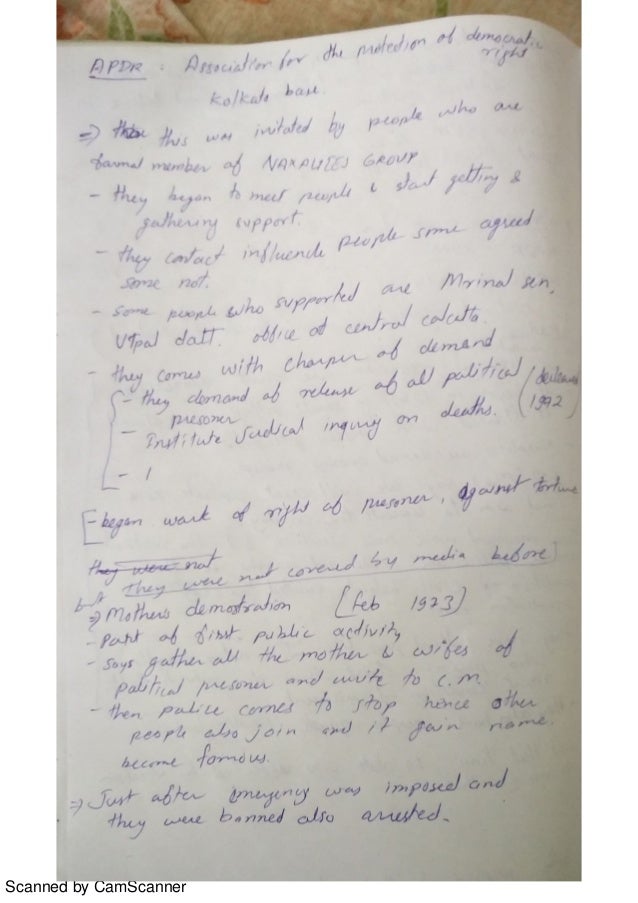 APDR : Association for the protection of democratic right
Kolkata base.
=> this was initated by people who are
formal member of NAXALITES GROUP
- they began to meet people & start getting &
gathering support.
- they contact influence people some agreed
some not.
- some people who supported are Mrinal sen,
Utpal datt. office at central calcutta.
- they comes with charper of demand
- they demand of release of all political presoner
- Institute Judical inquiry on deaths.
(1972)
- 1
[- began work of right of presoner, against torture
they were not
but they were not covered by media before]
=> Mothers demostration [Feb 1973)
- Part of first public activity
- says gather all the mother & wifes of
political presoner and write to C.M.
- then police comes to stop hence other
people also join and it gain name.
become famous.
=> Just after emergency was imposed and
they were banned also arrested.
Scanned by CamScanner